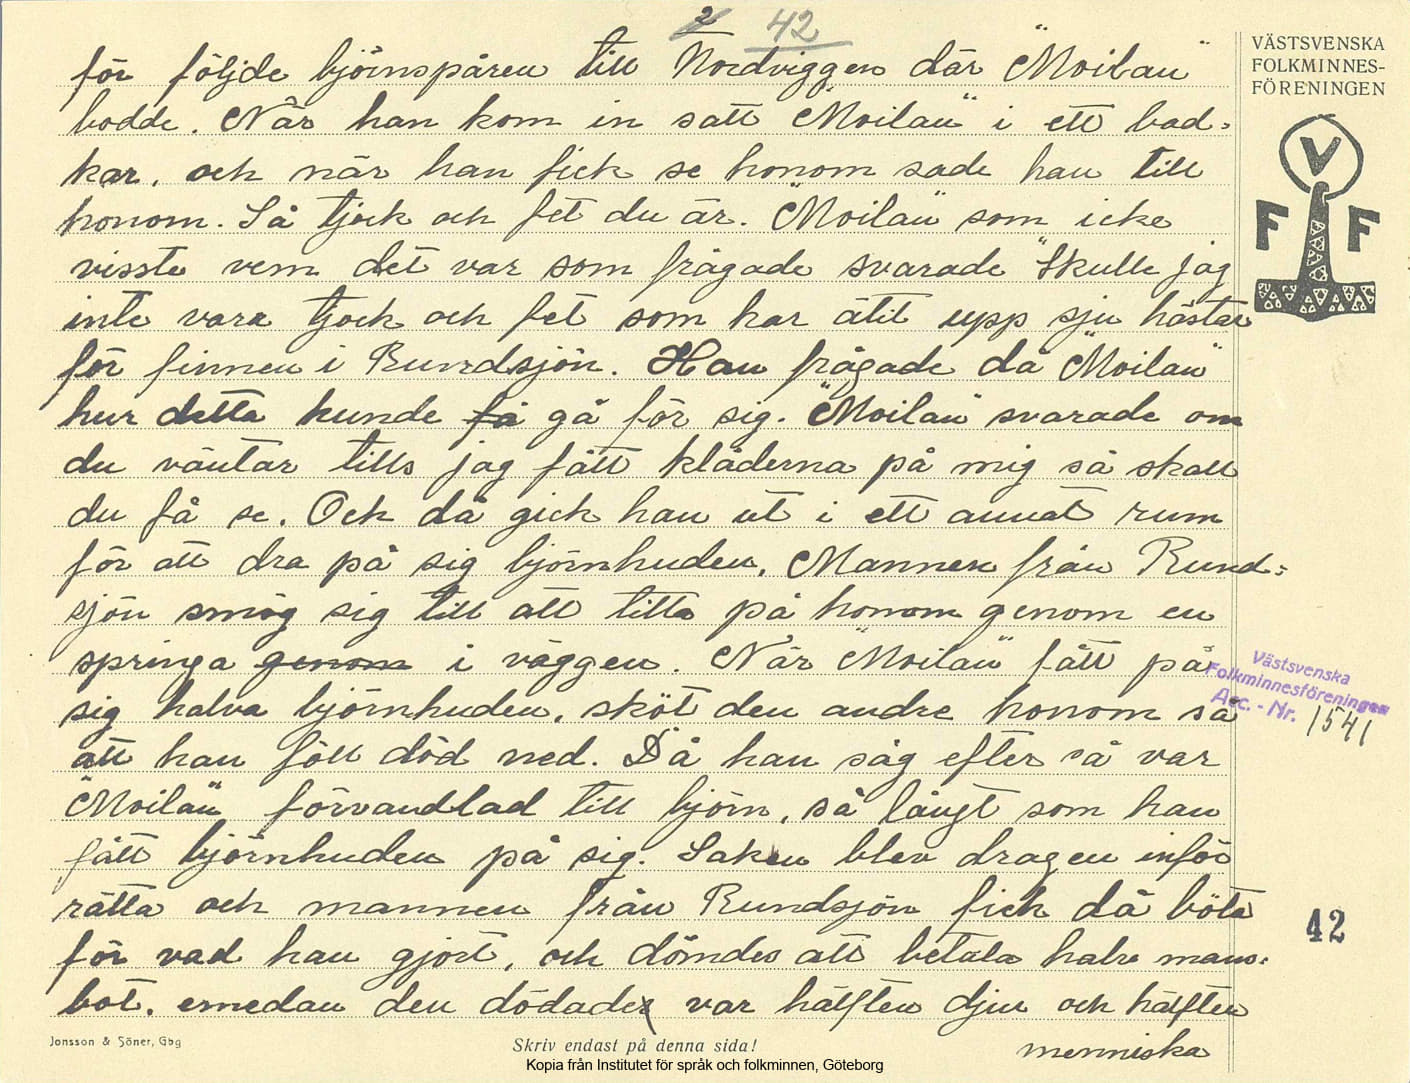 2 42
för följde björnspåren till Nordviggen där "Moilan"
bodde. När han kom in satt "Moilan" i ett bad-
kar, och när han fick se honom sade han till
honom. Så tjock och fet du är. "Moilan" som icke
visste vem det var som frågade svarade "Skulle jag
inte vara tjock och fet som har ätit upp sju hästar
för finnen i Rundsjön. Han frågade då "Moilan"
hur detta kunde få gå för sig. "Moilan" svarade om
du väntar tills jag fått kläderna på mig så skall
du få se. Och då gick han ut i ett annat rum
för att dra på sig björnhuden. Mannen från Rund-
sjön smög sig till att titta på honom genom en
springa genom i väggen. När "Moilan" fått på
sig halva björnhuden, sköt den andre honom så
att han föll död ned. Då han såg efter så var
"Moilan" förvandlad till björn, så långt som han
fått björnhuden på sig. Saken blev dragen inför
rätta och mannen från Rundsjön fick då böta
för vad han gjort, och dömdes att betala halv mans-
bot. emedan den dödade var hälften djur och hälften
menniska
VÄSTSVENSKA
FOLKMINNES-
FÖRENINGEN
V
F F
Västsvenska
Folkminnesföreningen
Acc. - Nr. 1541
42
Jonsson & Söner, Gbg
Skriv endast på denna sida!
Kopia från Institutet för språk och folkminnen, Göteborg